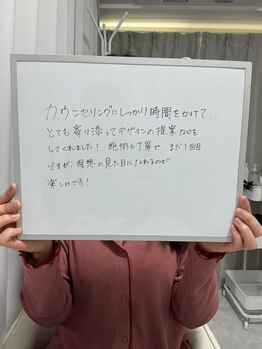 カウンセリングにしっかり時間をかけて、
とても寄り添ってデザインの提案などを
してくれました! 施術も丁寧で、まだ1回目
ですが、理想の見た目になれるのが
楽しみです!